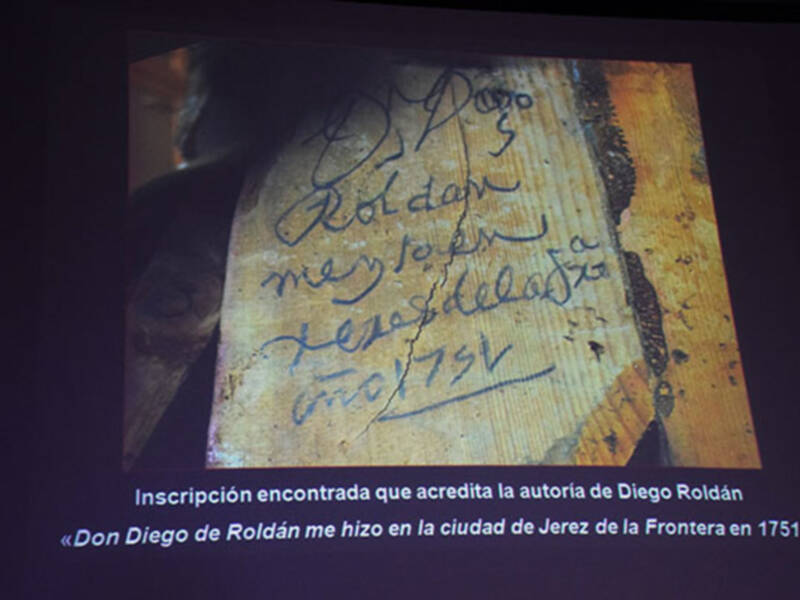 Dⁿ Diᵒ
Roldan
me yso en
xeres de la fᵃ
año 1751
Inscripción encontrada que acredita la autoría de Diego Roldán
«Don Diego de Roldán me hizo en la ciudad de Jerez de la Frontera en 1751